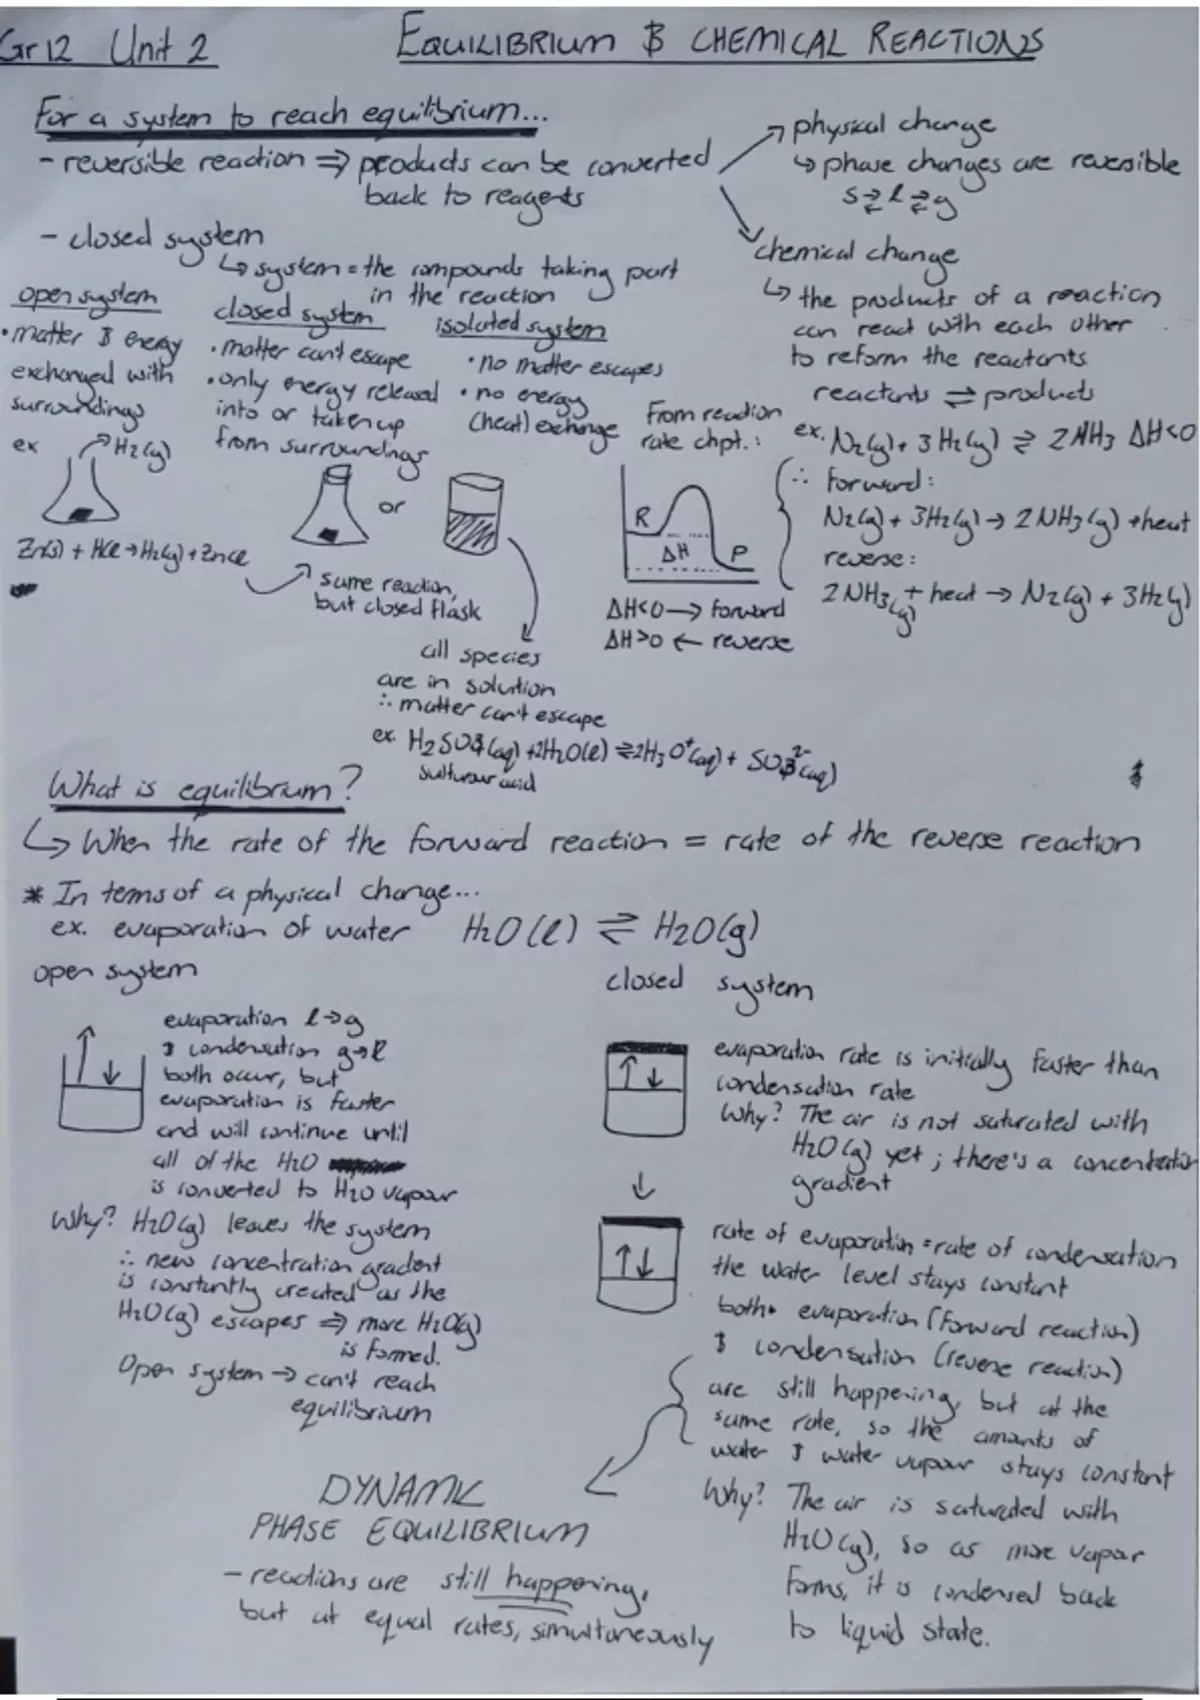 Gr 12 Unit 2
EQUILIBRIUM & CHEMICAL REACTIONS
For a system to reach equilibrium...
- reversible reaction ⇒ products can be converted
back to reagents
↗ physical change
↳ phase changes are reversible
s ⇄ l ⇄ g
↘ chemical change
↳ the products of a reaction
can react with each other
to reform the reactants
reactants ⇌ products
ex. N2(g) + 3H2(g) ⇌ 2NH3 ΔH<0
∴ forward:
N2(g) + 3H2(g) → 2NH3(g) + heat
reverse:
2NH3(g) + heat → N2(g) + 3H2(g)
- closed system
↳ system = the compounds taking part
in the reaction
open system
• matter & energy
exchanged with
surroundings
ex
↗ H2(g)
Zn(s) + HCl → H2(g) + ZnCl
closed system
• matter can't escape
• only energy released
into or taken up
from surroundings
or
same reaction,
but closed flask
isolated system
• no matter escapes
• no energy
(heat) exchange
all species
are in solution
∴ matter can't escape
ex. H2SO3(aq) + 2H2O(l) ⇌ 2H3O+(aq) + SO3 2-(aq)
sulfurous acid
From reaction
rate chpt.:
R
ΔH
P
ΔH<0 → forward
ΔH>0 ← reverse
What is equilibrium?
↳ When the rate of the forward reaction = rate of the reverse reaction
* In terms of a physical change...
ex. evaporation of water H2O(l) ⇌ H2O(g)
open system
evaporation l→g
& condensation g→l
both occur, but
evaporation is faster
and will continue until
all of the H2O
is converted to H2O vapour
Why? H2O(g) leaves the system
∴ new concentration gradent
is constantly created as the
H2O(g) escapes ⇒ more H2O(g)
is formed.
Open system → can't reach
equilibrium
closed system
evaporation rate is initially faster than
condensation rate
Why? The air is not saturated with
H2O(g) yet; there's a concentration
gradient
rate of evaporation = rate of condensation
the water level stays constant
both evaporation (forward reaction)
& condensation (reverse reaction)
are still happening, but at the
same rate, so the amonts of
water & water vapour stays constant
Why? The air is saturated with
H2O(g), so as more vapour
forms, it is condensed back
to liquid state.
DYNAMIC
PHASE EQUILIBRIUM
- reactions are still happening,
but at equal rates, simultaneously